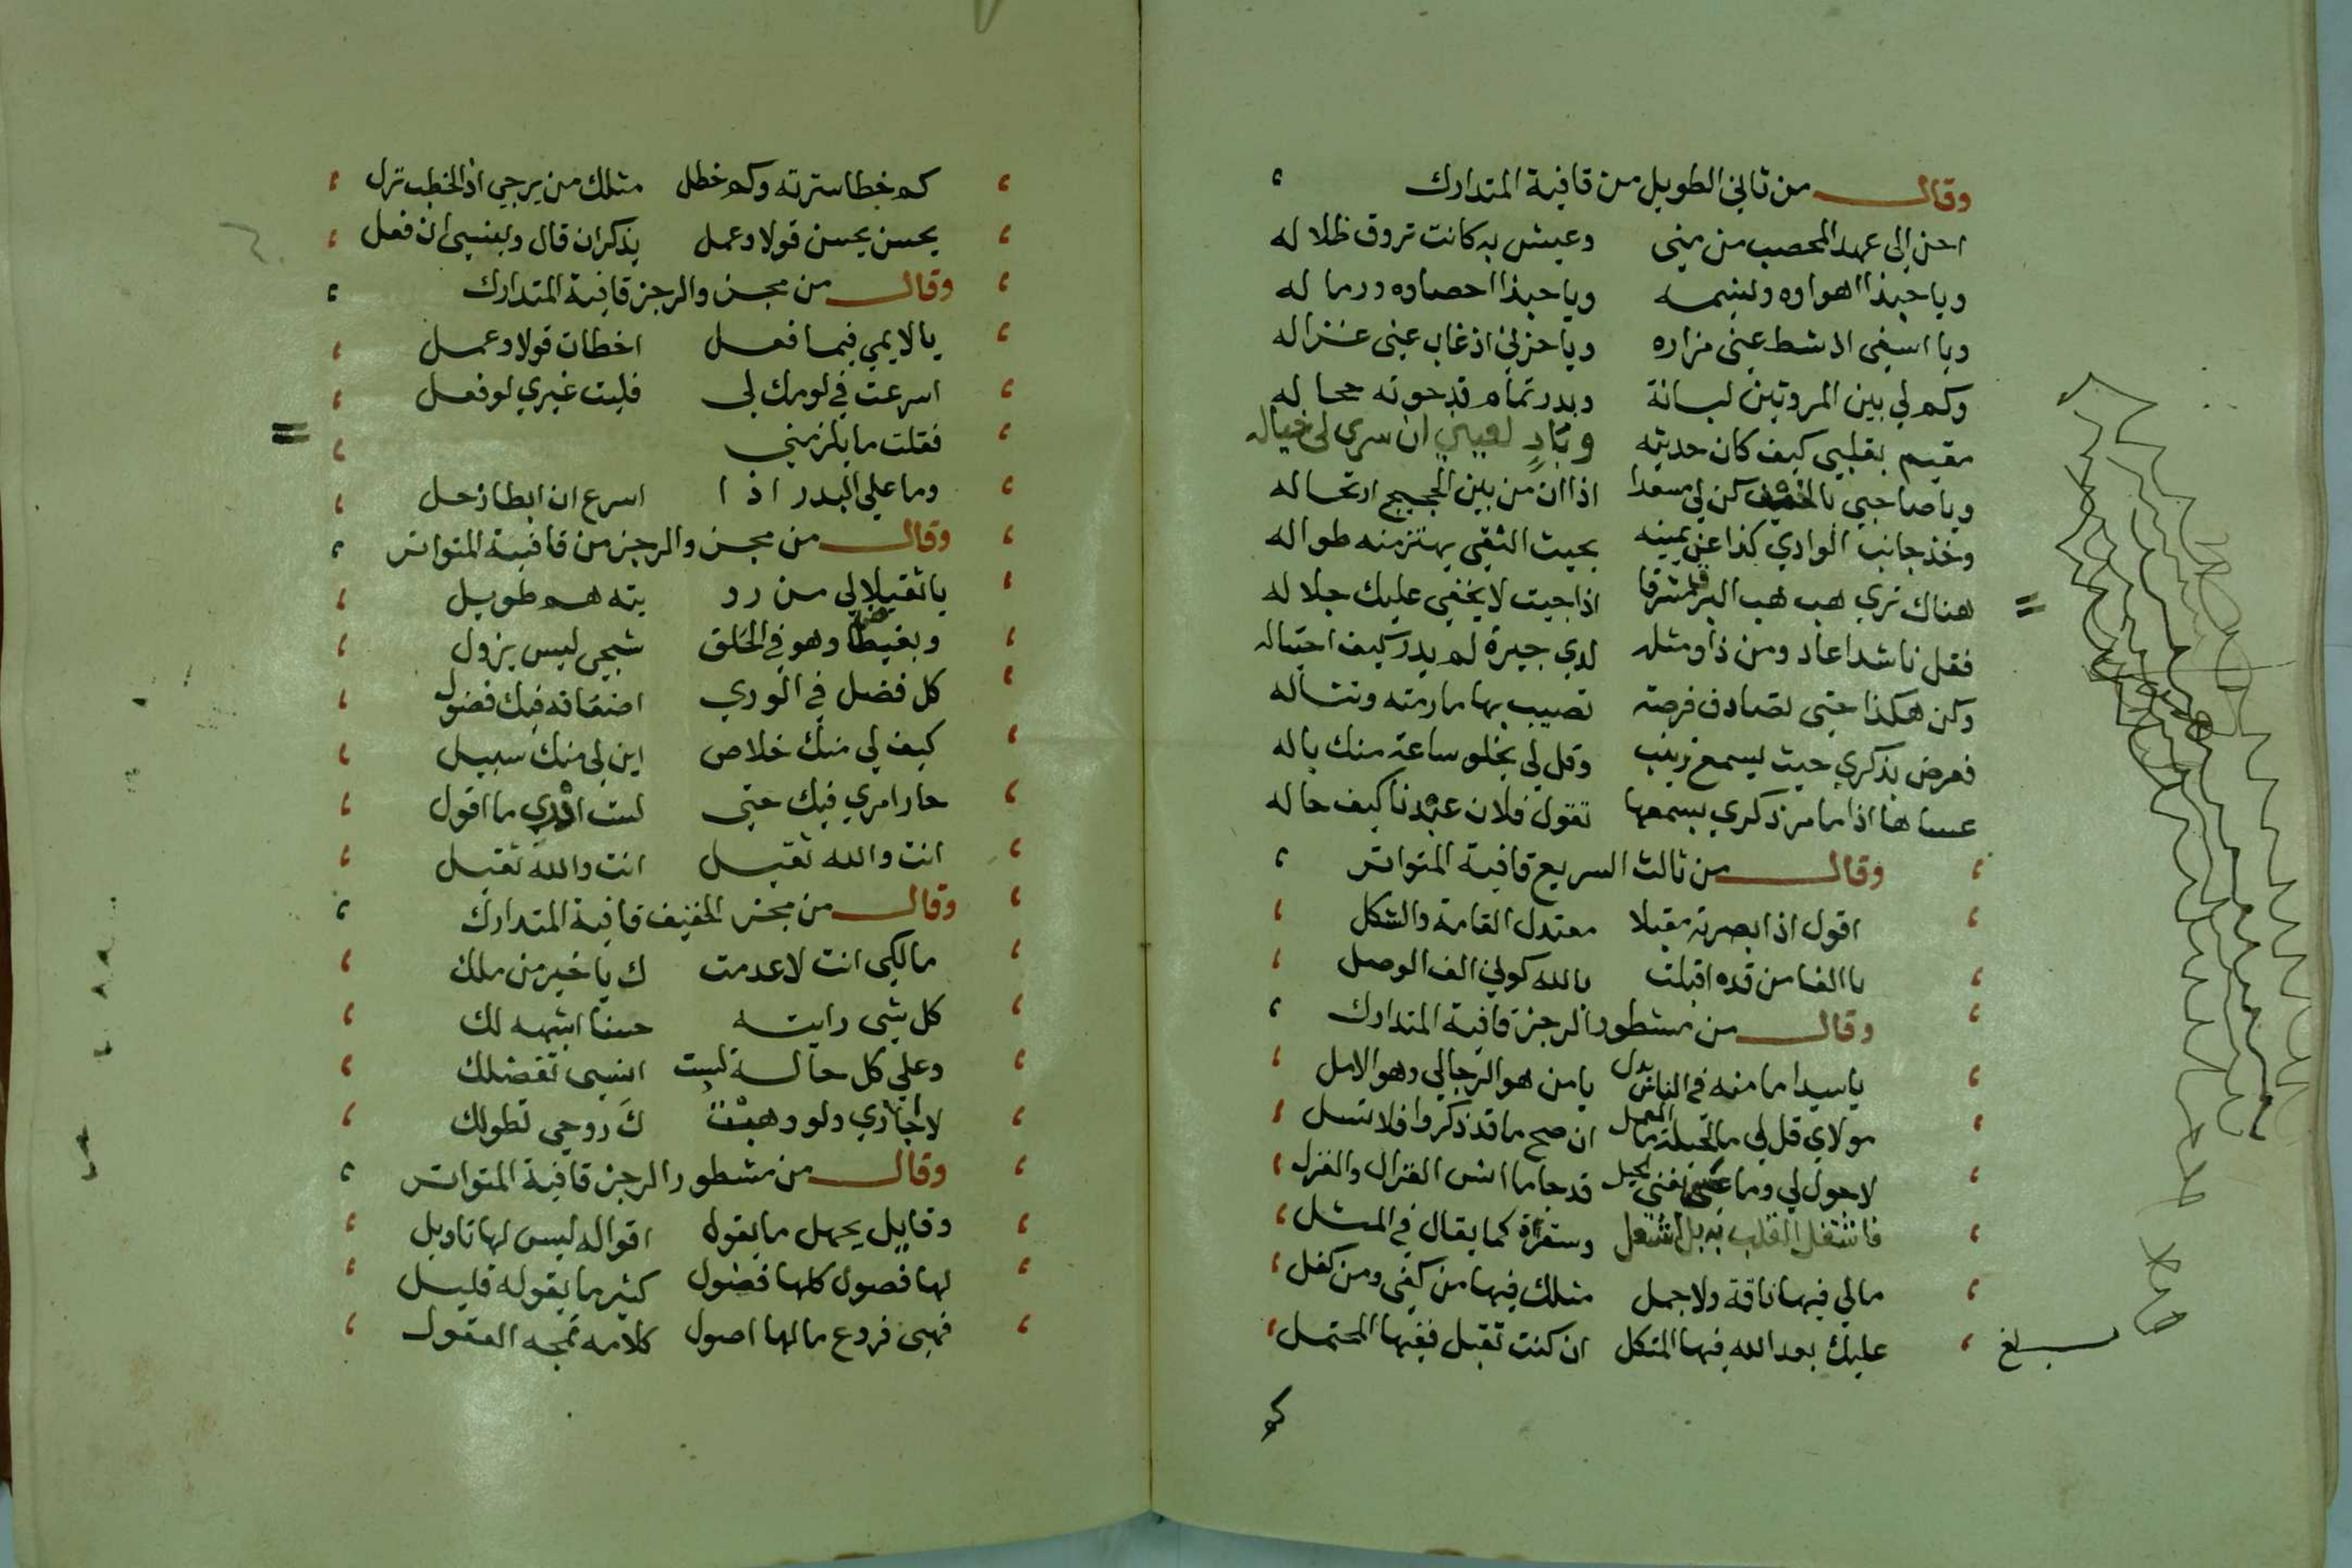 وقال من ثاني الطويل من قافية المتدارك
احن إلى عهد المحصب من منى وعيش به كانت تروق ظلاله
ويا حبذا اهواوه ونسيمه ويا حبذا احصاوه ورماله
ويا اسفى اذ شط عنى مزاره ويا حزنى اذ غاب عنى غزاله
وكم لي بين المروتين لبانة وبدر تمام قد حوته حجاله
مقيم بقلبي كيف كان حديثه وبادٍ لعيني ان سرى لى خياله
ويا صاحبي بالخيف كن لي مسعدا اذا ان من بين الحجيج ارتحاله
وخذ جانب الوادي كذا عن يمينه بحيث النقى يهتز منه طواله
هناك تري هب هب البر مشرقا اذا جيت لا يخفى عليك جلاله
فقل ناشدا عاد ومن ذا ومثله لدي جيرة لم يدر كيف احتياله
وكن هكذا حتى تصادف فرصة تصيب بها ما رمته وتناله
فعرض بذكري حيث يسمع زينب وقل لي يخلو ساعة منك باله
عساها اذا ما مر ذكري بسمعها تقول فلان عندنا كيف حاله
وقال من ثالث السريع قافية المتواتر
اقول اذا ابصرته مقبلا معتدل القامة والشكل
يا الفا من قده اقبلت بالله كوني الف الوصل
وقال من مشطور الرجز قافية المتدارك
يا سيدا ما منه في الناس بدل يا من هو الرجا لي وهو الامل
مولاي قل لي ما الحيلة ما العمل ان صح ما قد ذكروا فلا تسل
لا حول لي وما عسى تغني الحيل قد جا ما انسى الغزال والغزل
فاشتغل القلب به بل اشتعل وستراه كما يقال في المثل
مالي فيها ناقة ولا جمل مثلك فيها من كفى ومن كفل
عليك بعد الله فيها المتكل ان كنت تقبل ففيها المحتمل
بلغ
كم
كم خطا سترته وكم خطل مثلك من يرجي اذ الخطب نزل
يحسن يحسن قولا وعمل يذكر ان قال وينسى ان فعل
وقال من مجزو الرجز قافية المتدارك
يا لايمي فيما فعل اخطات قولا وعمل
اسرعت في لومك لى فليت غيري لو فعل
فقلت ما يلزمني
وما علي البدر اذا اسرع ان ابطا زحل
وقال من مجزو الرجز من قافية المتواتر
يا ثقيلا لي من رو يته هم طويل
وبغيضا وهو في الحلق شجى ليس يزول
كل فضل في الوري اضعافه فيك فضول
كيف لي منك خلاص اين لى منك سبيل
حار امري فيك حتى لست ادري ما اقول
انت والله ثقيل انت والله ثقيل
وقال من مجزو الخفيف قافية المتدارك
مالكى انت لا عدمت ك يا خير من ملك
كل شى رايته حسنا اشبهه لك
وعلي كل حالة لست انسى تفضلك
لا اجازي ولو وهبت كَ روحي تطولك
وقال من مشطور الرجز قافية المتواتر
وقايل يجهل ما يقوله اقواله ليس لها تاويل
لها فصول كلها فضول كثير ما يقوله قليل
فهي فروع ما لها اصول كلامه تمجه العقول